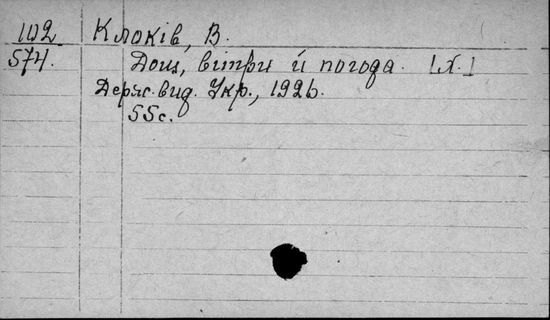 102 Клоків, В.
574. Дощ, вітри й погода. [Х.]
Держ. вид. Укр., 1926.
55 с.